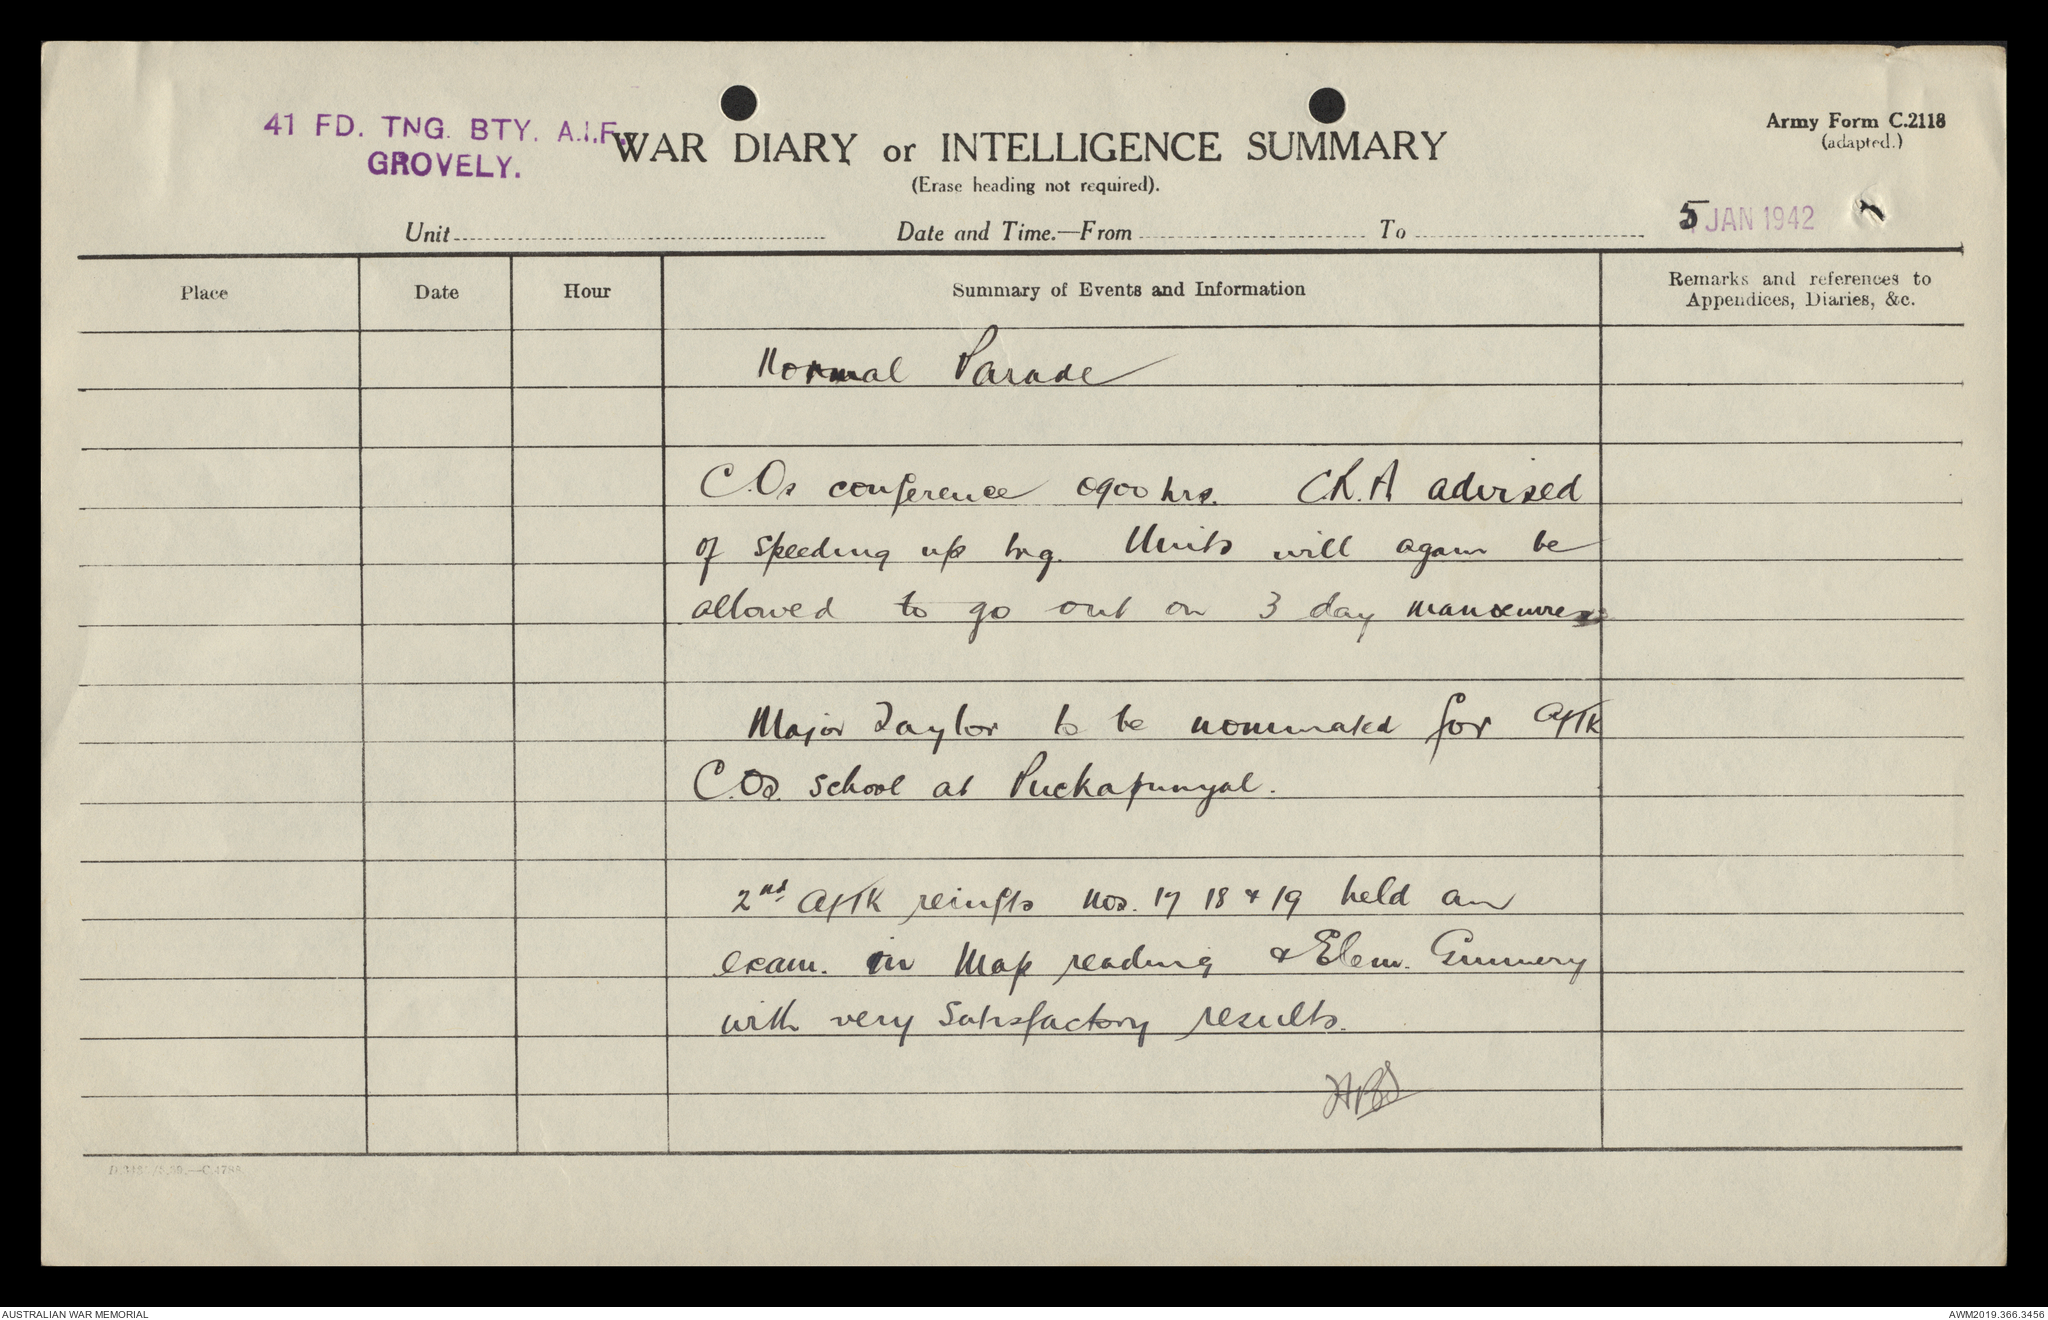 41 FD. TNG. BTY. A.I.F.
GROVELY.
WAR DIARY or INTELLIGENCE SUMMARY
(Erase heading not required).
Army Form C.2118
(adapted.)
Unit
Date and Time.—From
To
5 JAN 1942
Place
Date
Hour
Summary of Events and Information
Remarks and references to
Appendices, Diaries, &c.
Normal Parade
C.Os conference 0900 hrs. C.R.A advised
of speeding up trg. Units will again be
allowed to go out on 3 day manoeuvres
Major Taylor to be nominated for A/TK
C.Os. school at Puckapunyal.
2nd. A/TK reinfts nos. 17 18 & 19 held an
exam. in Map reading & Elem. Gunnery
with very satisfactory results.
AUSTRALIAN WAR MEMORIAL
AWM2019.366.3456